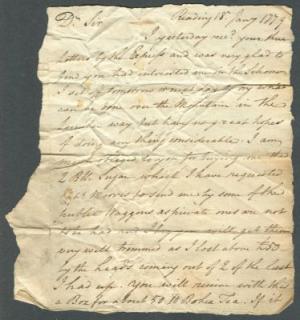 Dr Sir Reading 18 Jany 1779
I yesterday recd your two
letters by the Express and was very glad to
find you had interested me in the Schooner
I set off tomorrow
can be done over the Mountain in the
way but have no great hopes
of doing any thing considerable. I am
to you for buying me the
2 Bbl Sugar which I have requested
to send me by some of the
public Waggons as private ones are not
to be had and I hope you will get them
very well trimmed as I lost above
by the heads coming out of 2 of the last
I had up. You will receive with this
a Box for about 50 lb Bohea Tea. If it